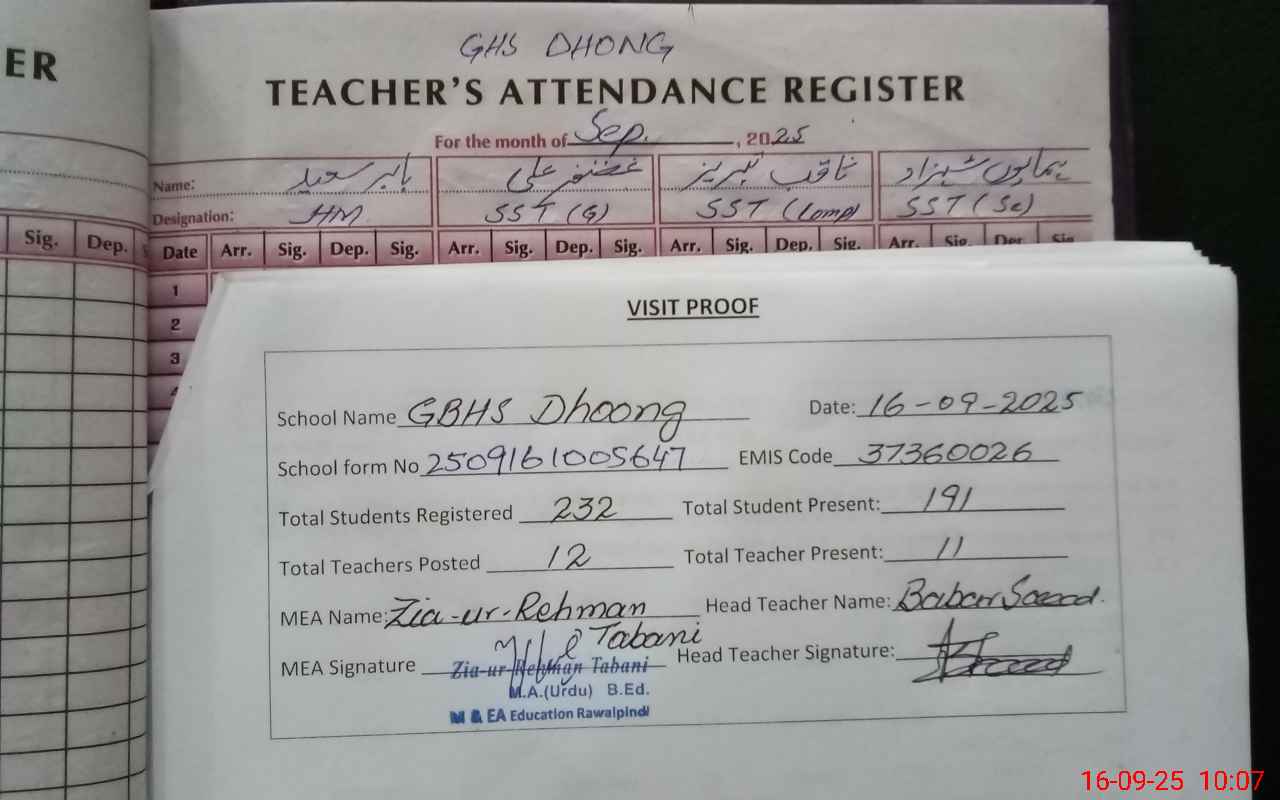 ER
Sig. Dep. S
GHS DHONG
TEACHER'S ATTENDANCE REGISTER
For the month of Sep. , 2025
Name: بابر سعید غضنفر علی ثاقب تبریز ہمایوں شہزاد
Designation: HM SST (G) SST (Comp) SST (Sc)
Date Arr. Sig. Dep. Sig. Arr. Sig. Dep. Sig. Arr. Sig. Dep. Sig. Arr. Sig. Dep. Sig.
1
2
3
4
VISIT PROOF
School Name GBHS Dhoong Date: 16-09-2025
School form No 2509161005647 EMIS Code 37360026
Total Students Registered 232 Total Student Present: 191
Total Teachers Posted 12 Total Teacher Present: 11
MEA Name: Zia-ur-Rehman Tabani Head Teacher Name: Babar Saeed.
MEA Signature Head Teacher Signature:
Zia-ur Rehman Tabani
M.A.(Urdu) B.Ed.
M & EA Education Rawalpindi
16-09-25 10:07